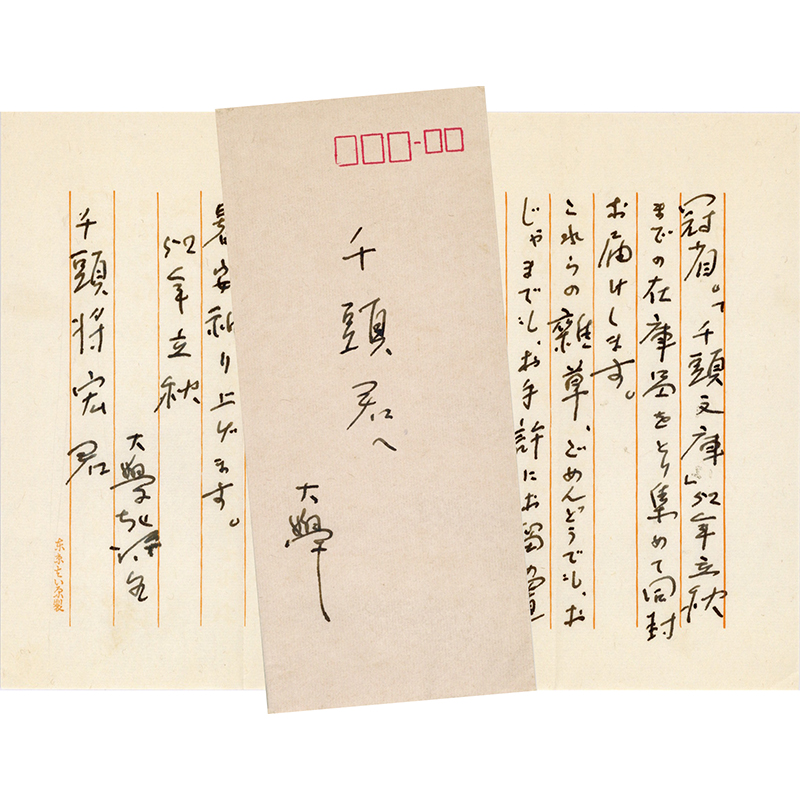 冠省。「千頭文庫」52年立秋
までの在庫品をとり集めて同封
お届けします。
これらの雑草、ごめんどうでも、お
じゃまでも、お手許にお留め置
暑安祈り上げます。
52年立秋
大學
千頭将宏君
千頭君へ
大學